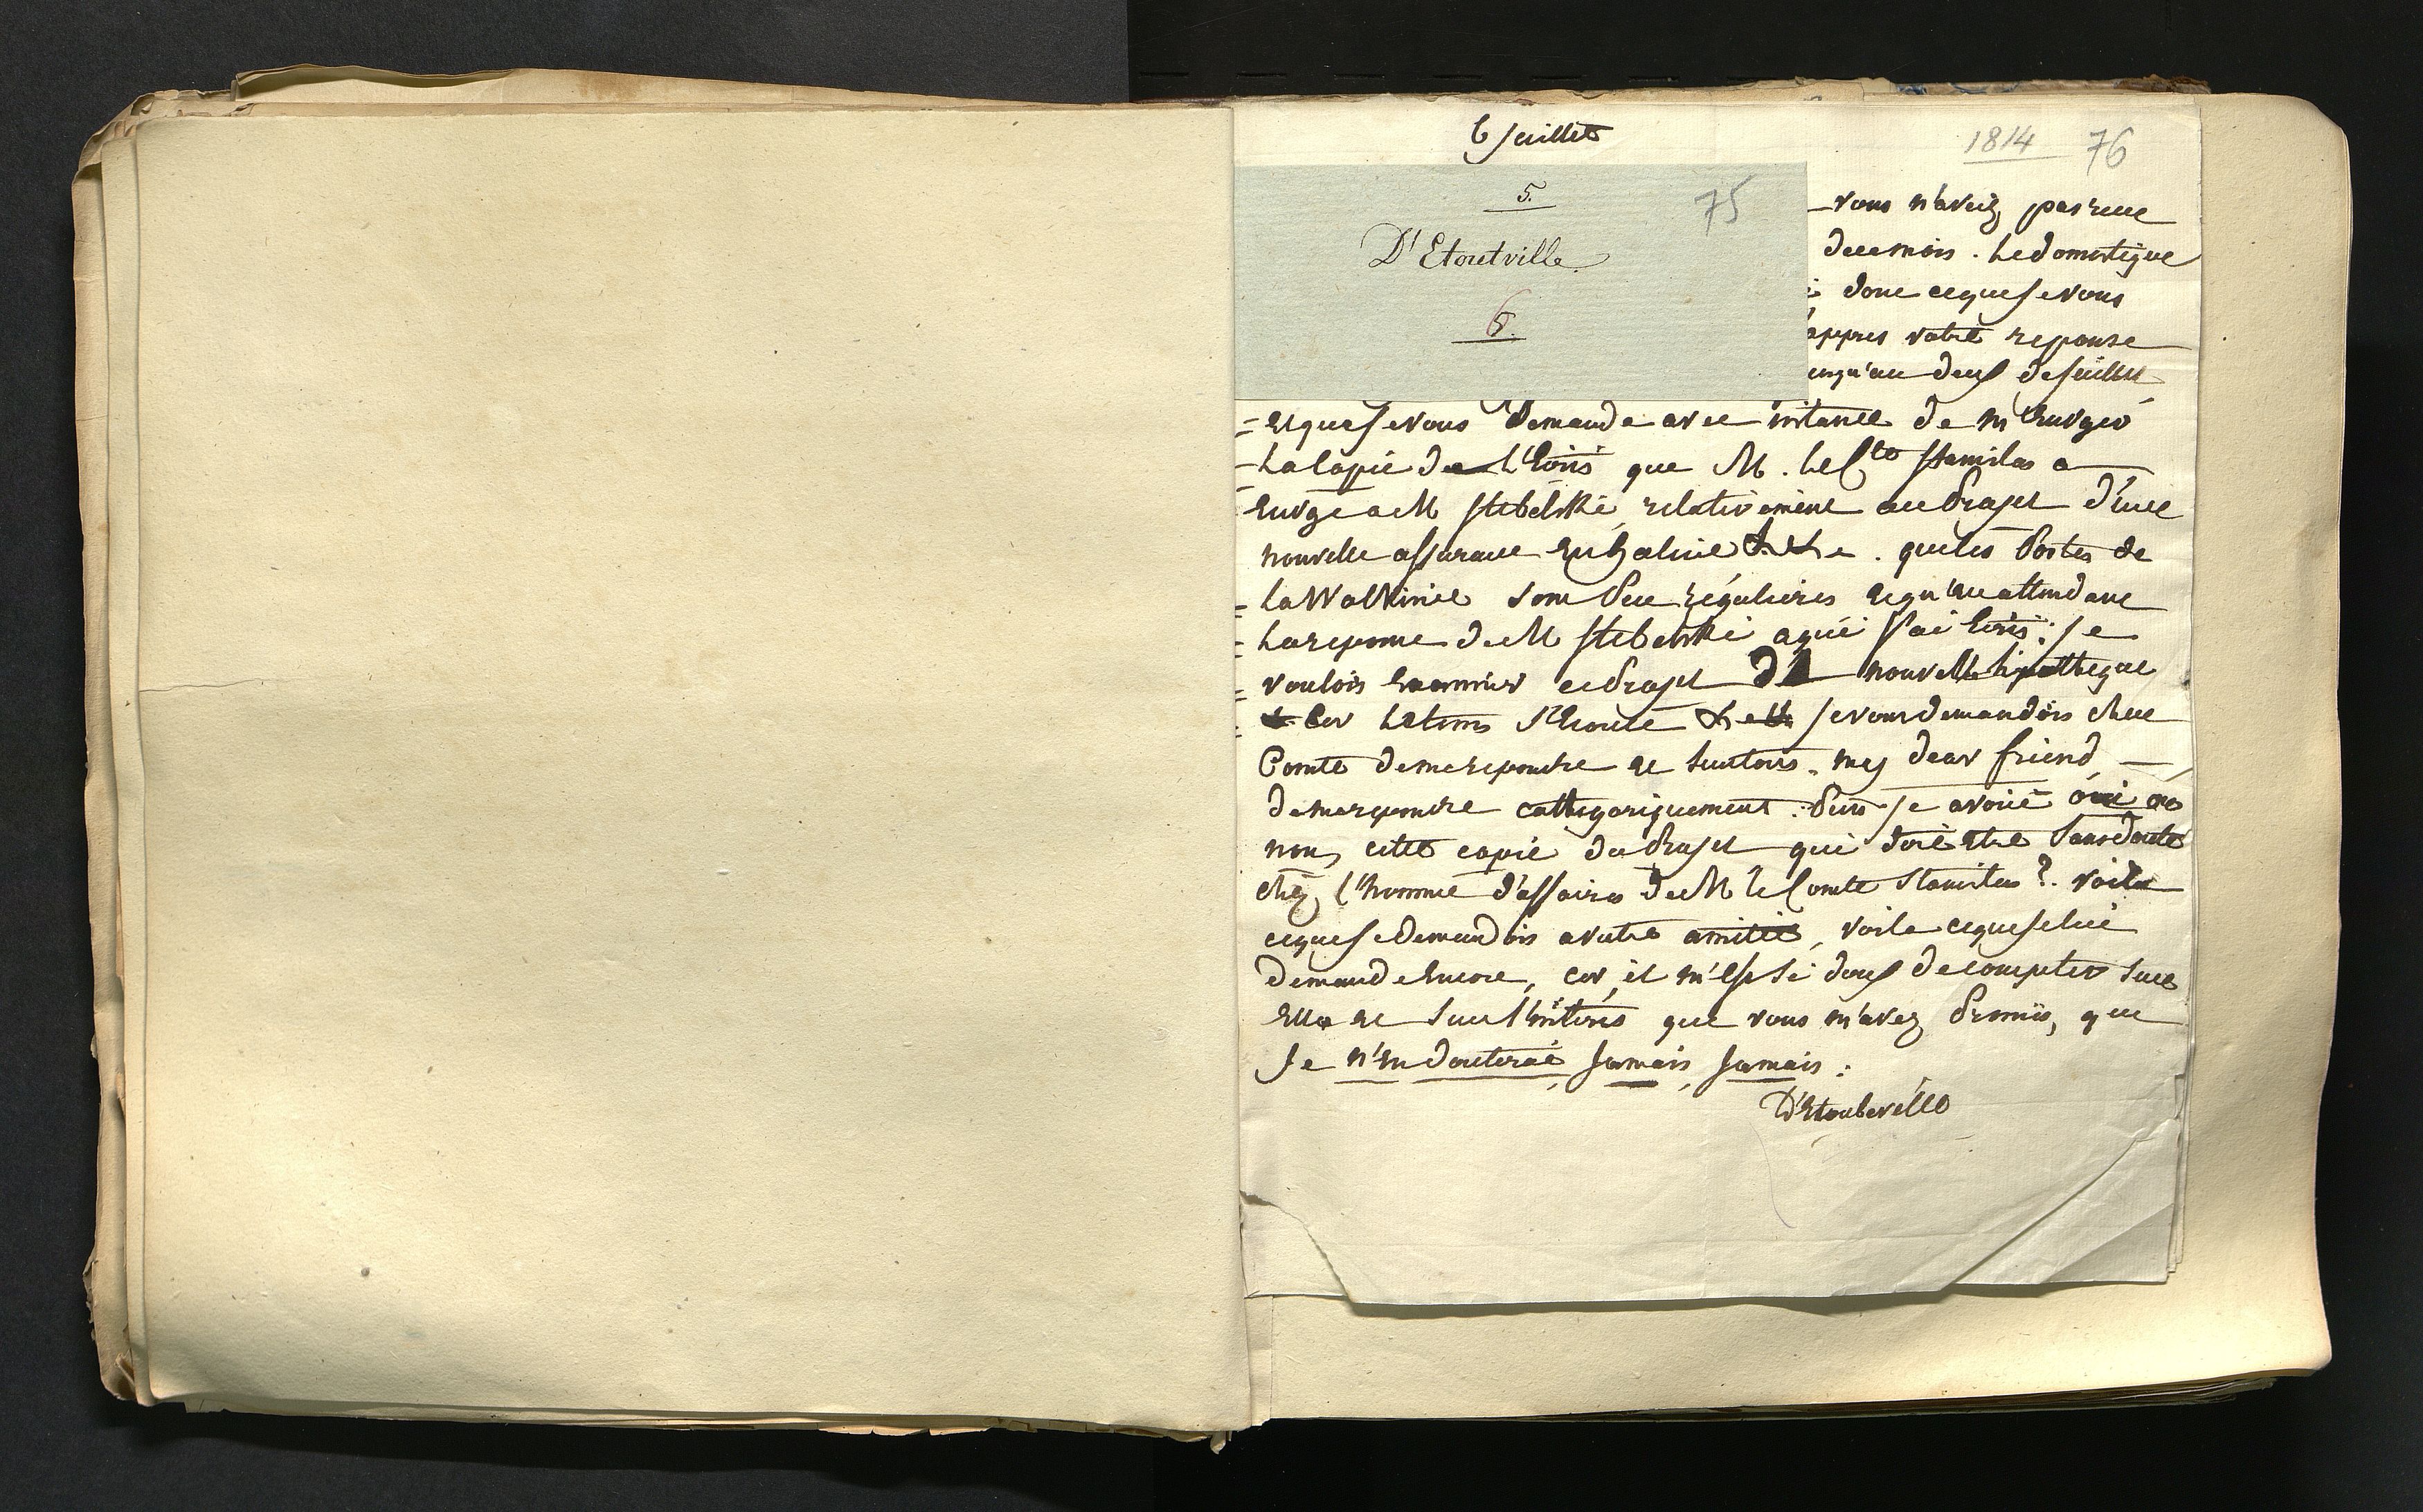 6 Juillet
1814 76
5.
75
D'Etoutville
6.
vous n'aviez pas reue
de ce mois. Le domestique
donc ceque je vous
appres votre reponse
usqu'au deux de juillet
= et que je vous demande avec instance de m'envoyer
- la copie de l'Ecris que M. le Cte Stanislas a
- Envoye a M Stebelski, relativement au Projet d'une
nouvelle assurance que les Postes de
= la Wolkinie sont Peu régulieres et qu'en attendant
= la reponse de M Stebelski a qui j'ai Ecris; je
= voulois Examiner ce Projet de nouvelle hipotheque
= Car le tems s'Ecoule je vous demandois cher
Comte de me repondre et surtout, my dear friend —
de me repondre cathegoriquement: Puis je avoir oui ou
non, cette copie du Projet qui doit etre sans doute
chez l'homme d'affaires de M le Comte Stanislas?. voila
ceque je demandois a votre amitié, voila ceque je lui
demande Encore, car, il m'est si doux de compter sur
Elle et sur l'interes que vous m'avez Promis, que
Je n'en douterai jamais, jamais:
D'Etouteville